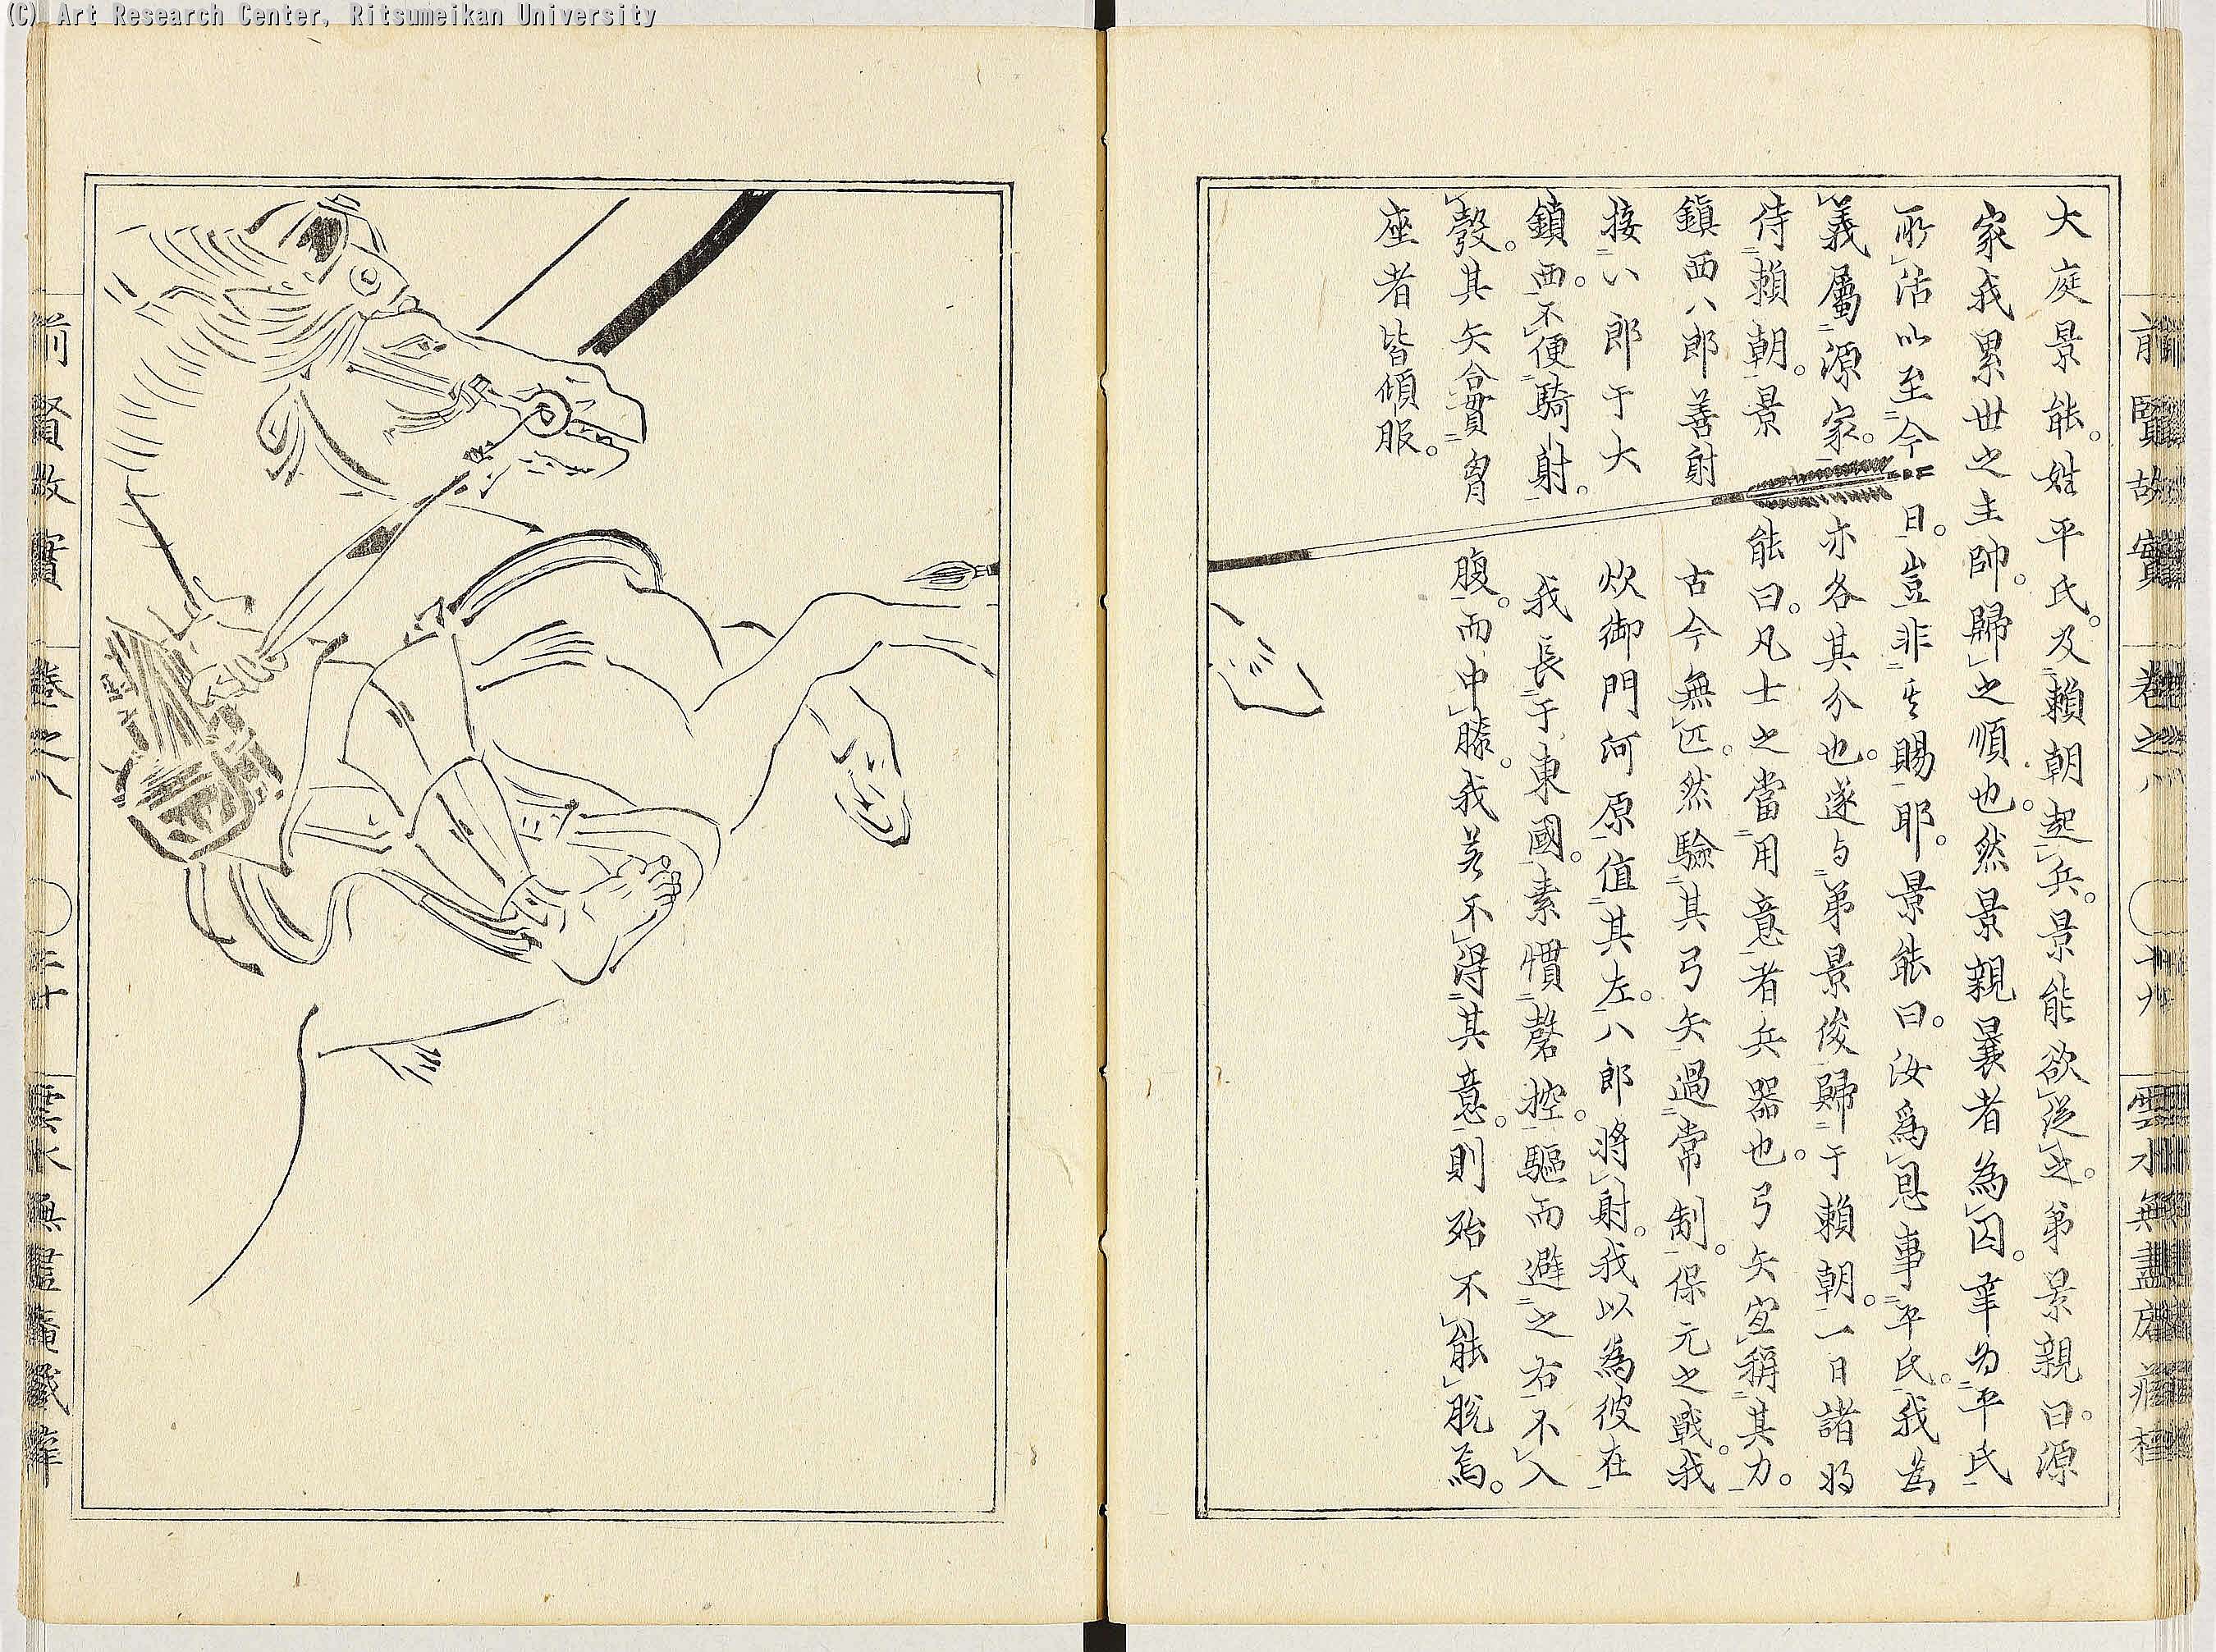 (C) Art Research Center, Ritsumeikan University
前賢故實 卷之八 十九 雲水無盡庵藏
大庭景能。姓平氏。及賴朝起兵。景能欲從之。弟景親曰。源
家我累世之主帥。歸之順也。然景親曩者為囚。幸為平氏
所活以至今日。豈非其賜耶。景能曰。汝為恩事平氏。我為
義屬源家。亦各其分也。遂与弟景俊歸于賴朝。一日諸將
侍賴朝。景能曰。凡士之當用意者兵器也。弓矢宜稱其力。
鎮西八郎善射古今無匹。然驗其弓矢過常制。保元之戰。我
接八郎于大炊御門河原値其左。八郎將射。我以為彼在
鎮西。不便騎射。我長于東國。素慣磬控。驅而避之右不入
彀。其矢合貫胷腹。而中膝。我若不得其意。則殆不能脫焉。
座者皆傾服。
前賢故實 卷之八 二十 雲水無盡庵藏